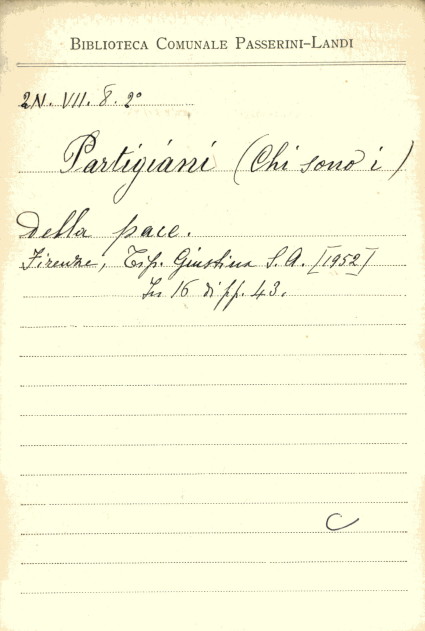 BIBLIOTECA COMUNALE PASSERINI-LANDI
2N. VII. 8. 2º
Partigiani (Chi sono i)
della pace.
Firenze, Tip. Giustina S.A. [1952]
In 16 di pp. 43.
C